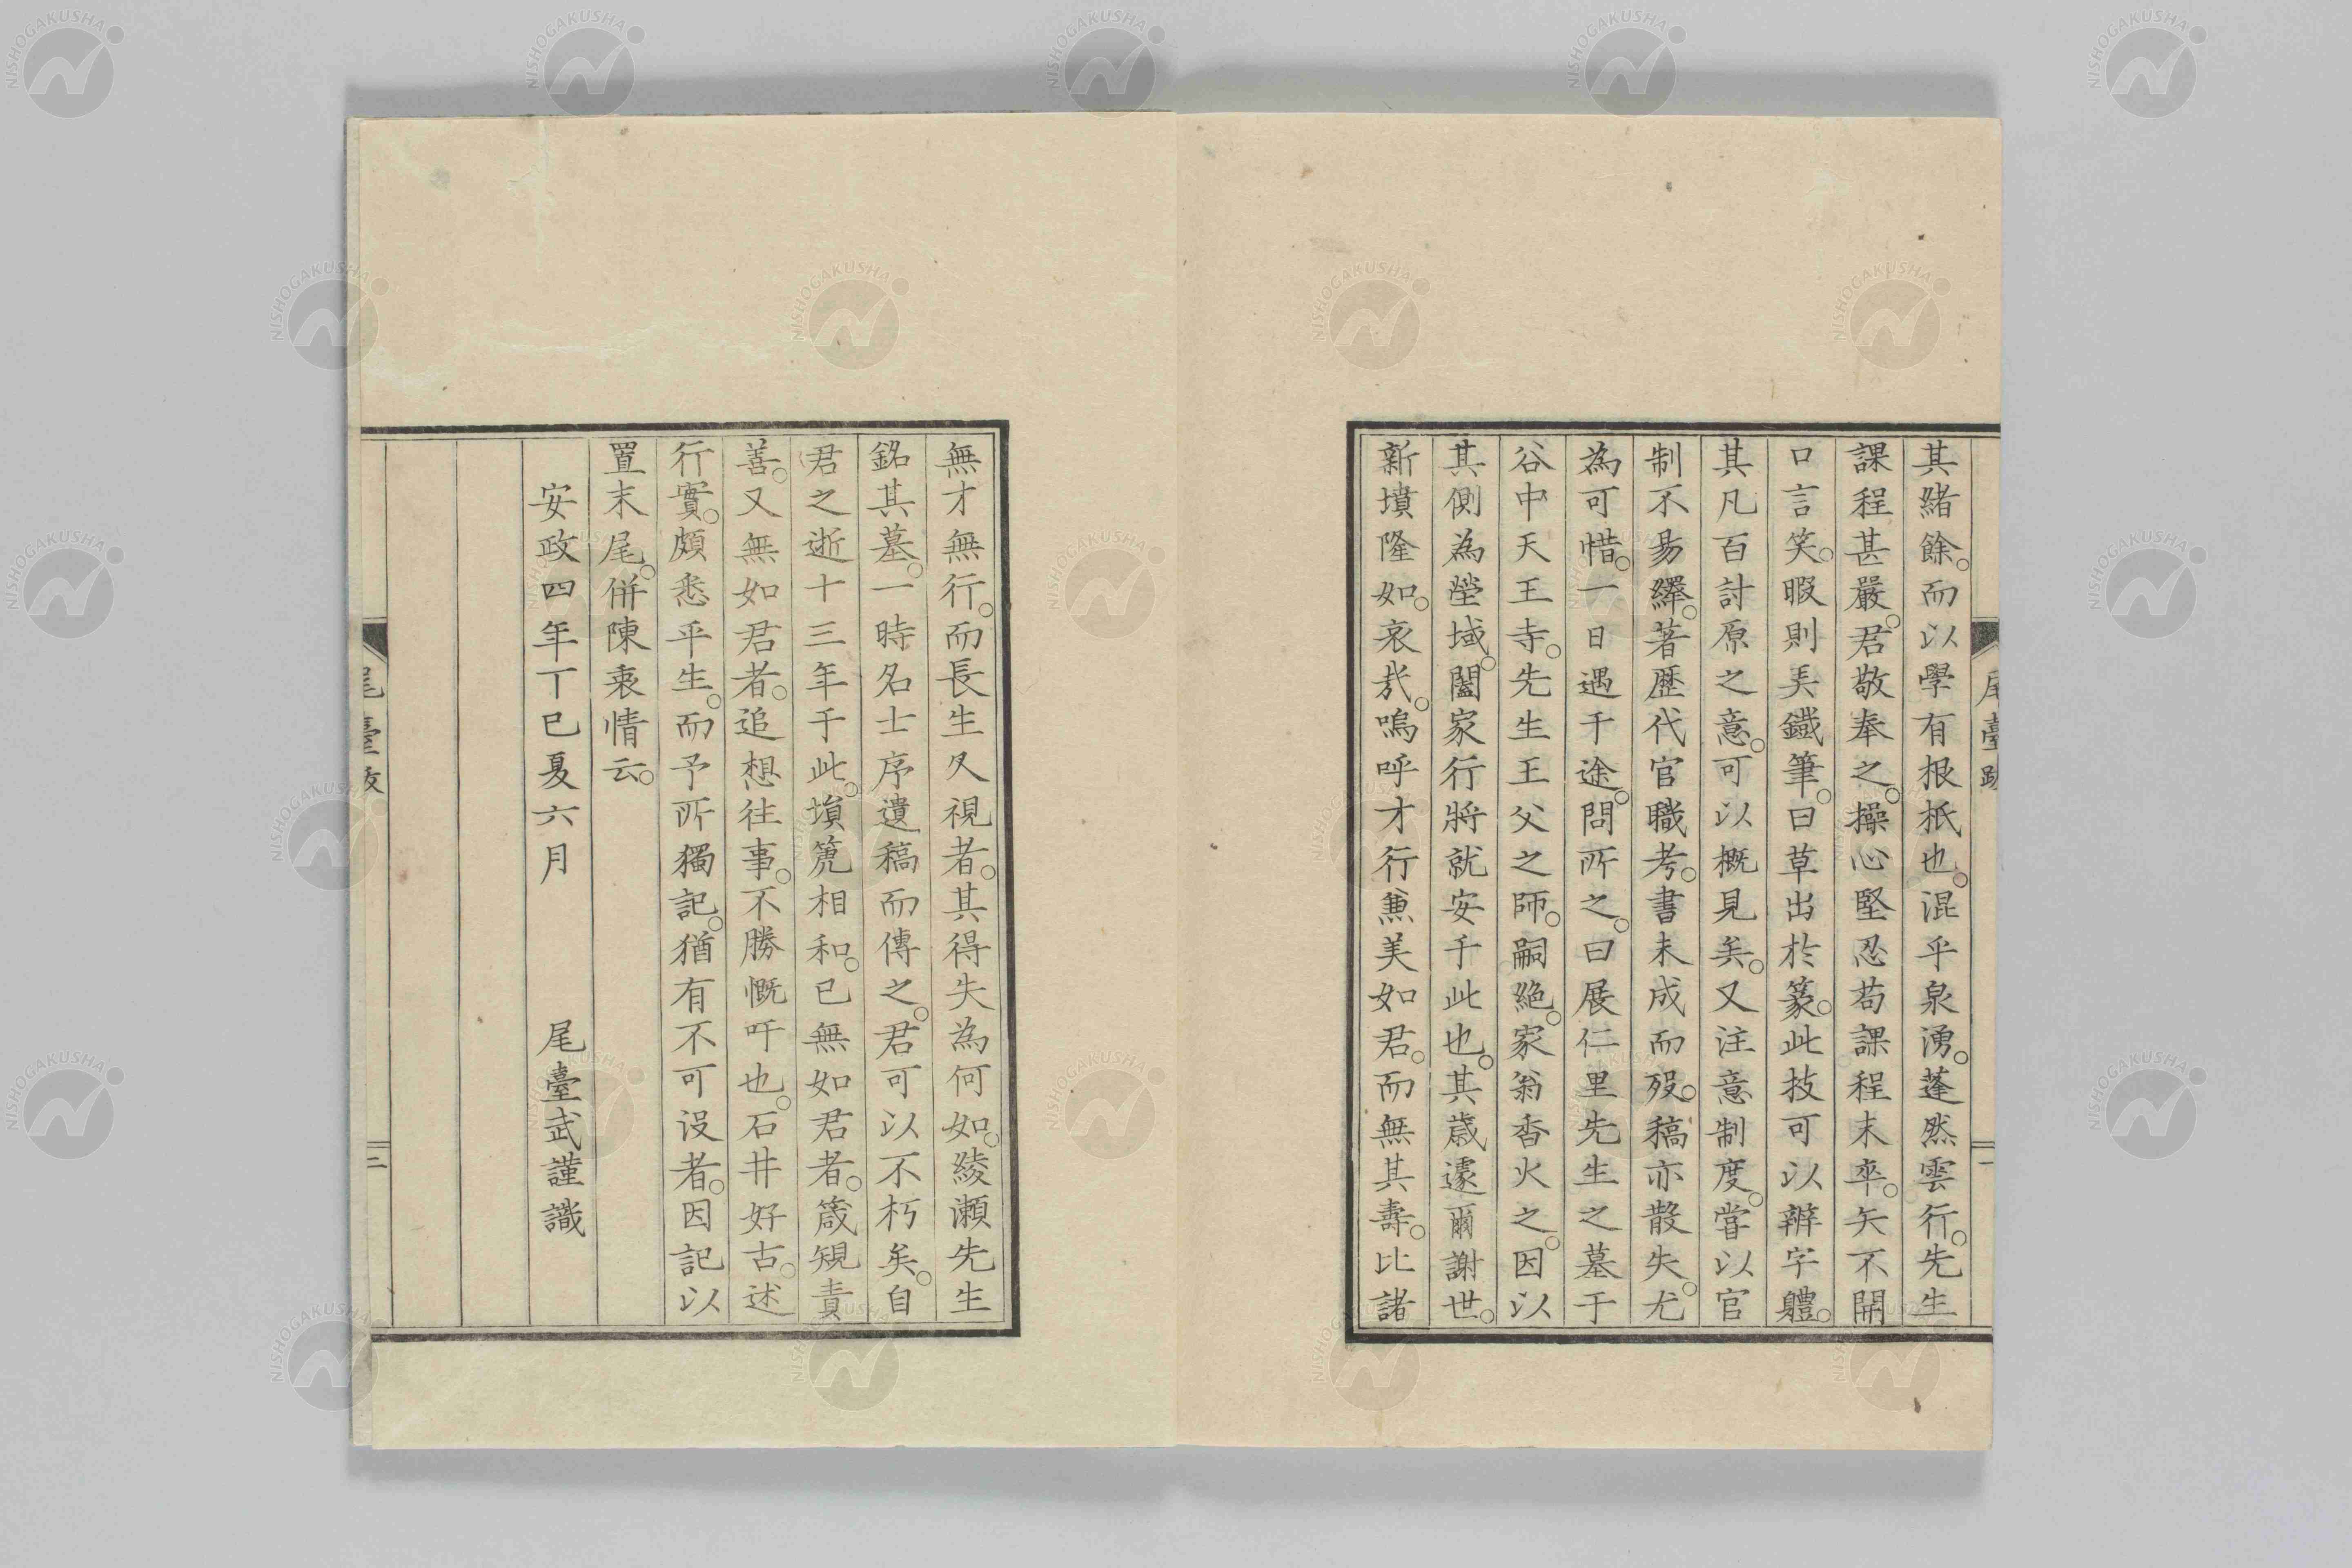 其緒餘。而以學有根柢也。混乎泉湧。蓬然雲行。先生
課程甚嚴。君敬奉之。操心堅忍。苟課程末卒。矢不開
口言笑。暇則弄鐵筆。曰草出於篆。此技可以辨字軆。
其凡百討原之意。可以概見矣。又注意制度。嘗以官
制不易繹。著歴代官職考。書未成而歿。稿亦散失。尤
為可惜。一日遇于途。問所之。曰展仁里先生之墓于
谷中天王寺。先生王父之師。嗣絶。家翁香火之。因以
其側為塋域。闔家行將就安于此也。其歳遽爾謝世。
新墳隆如。哀哉。嗚呼才行兼美如君。而無其壽。比諸
無才無行。而長生久視者。其得失為何如。綾瀬先生
銘其墓。一時名士序遺稿而傳之。君可以不朽矣。自
君之逝十三年于此。塤篪相和。已無如君者。箴規責
善。又無如君者。追想往事。不勝慨吁也。石井好古。述
行實。頗悉平生。而予所獨記。猶有不可没者。因記以
置末尾。併陳衷情云。
安政四年丁巳夏六月 尾臺武謹識
尾臺跋 一
尾臺跋 二
NISHOGAKUSHA